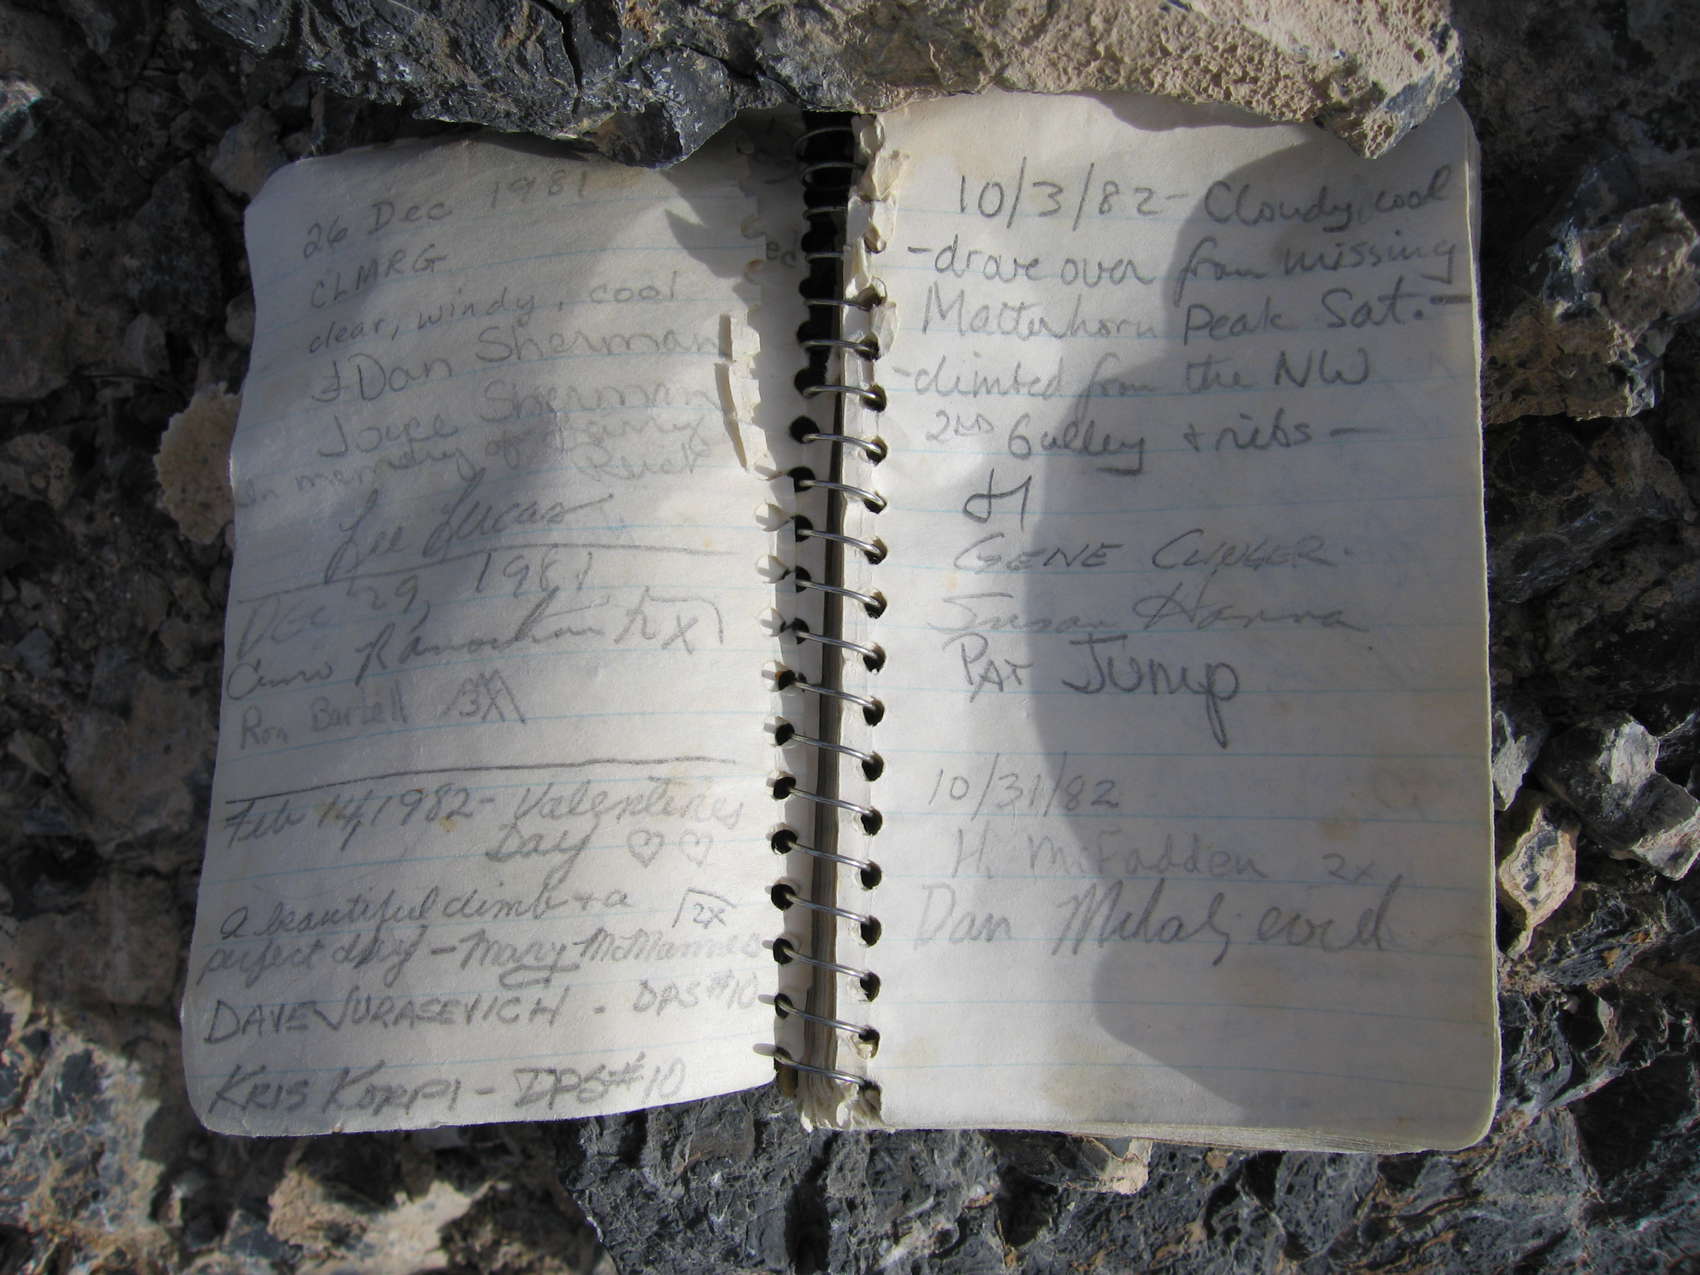 26 Dec 1981
CLMRG
clear, windy, cool
Dan Sherman
Joyce Sherman
in memory of
Lee Lucas
Dec 29, 1981
Ron Bartell 3X
Feb 14, 1982 - Valentines
Day ♡ ♡
A beautiful climb + a 2x
perfect day - Mary McMannes
DAVE JURASEVICH - DPS #10
KRIS KOPPI - DPS #10
ed
10/3/82 - Cloudy, cool
- drove over from missing
Matterhorn Peak Sat. -
- climbed from the NW
2ND Gulley + ribs -
GENE
Susan Hanna
PAT Jump
10/31/82
H. McFadden 2x
Dan